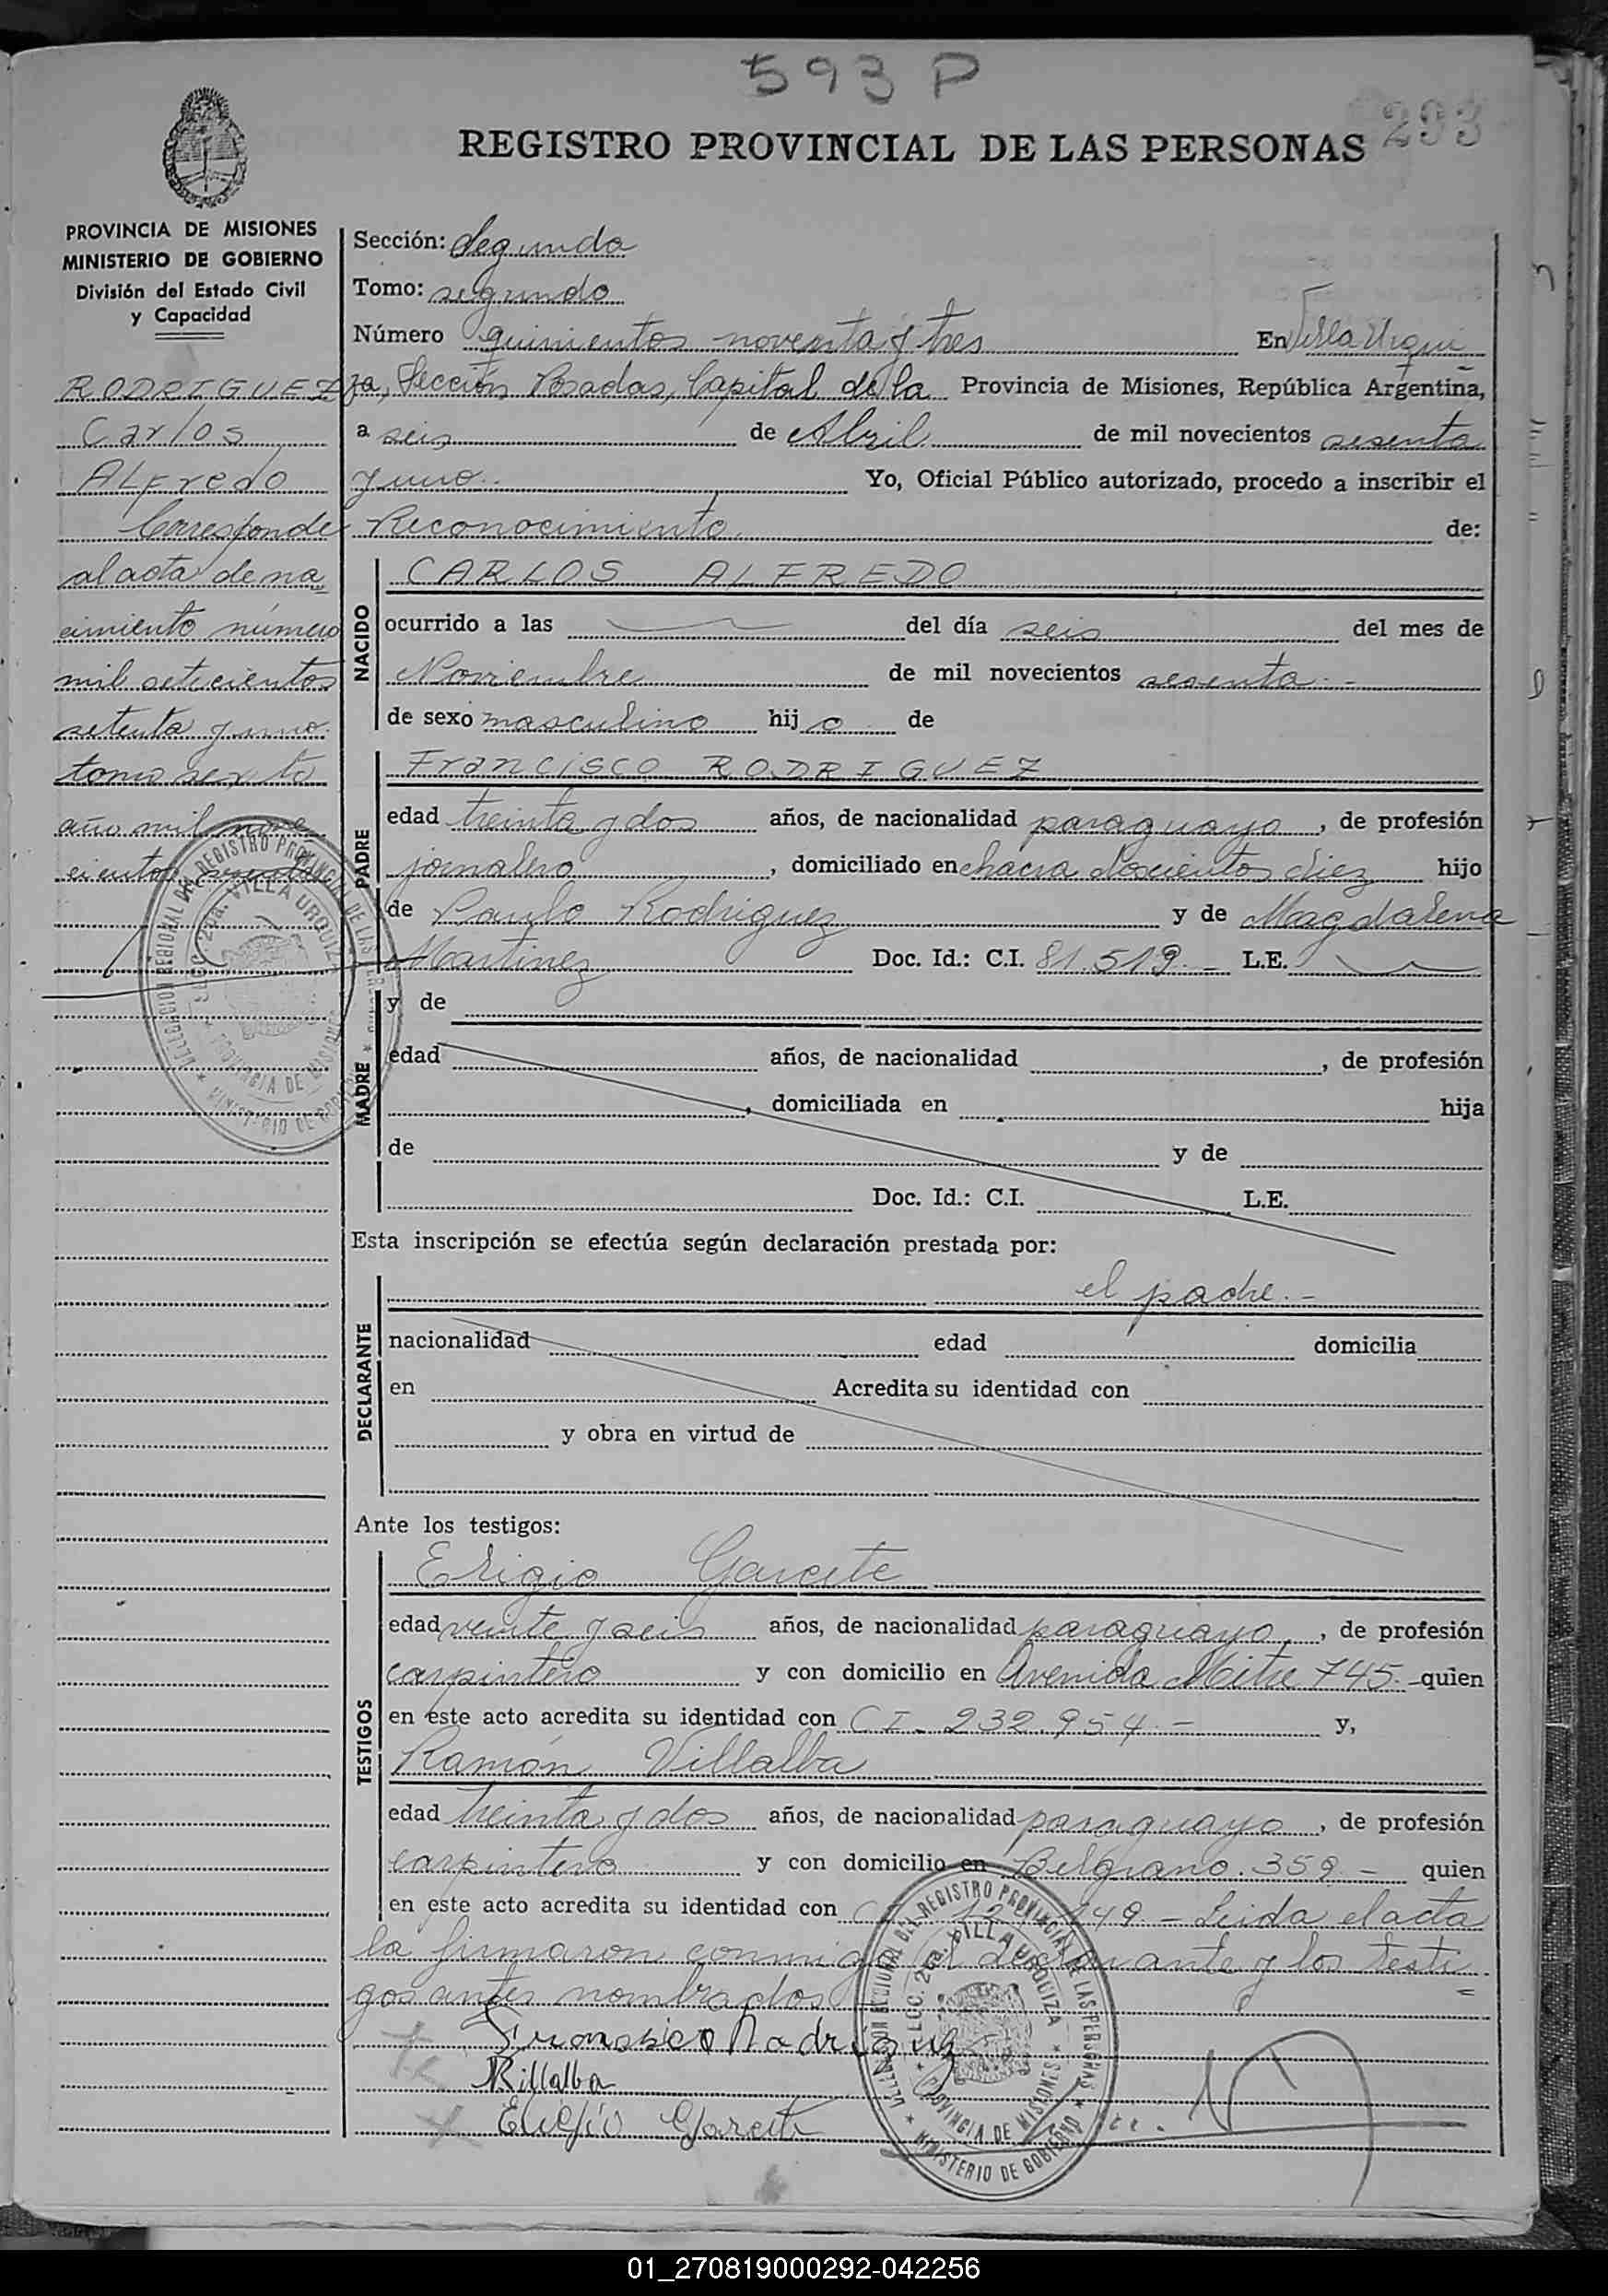 593 P
293
REGISTRO PROVINCIAL DE LAS PERSONAS
PROVINCIA DE MISIONES
MINISTERIO DE GOBIERNO
División del Estado Civil
y Capacidad
RODRIGUEZ
Carlos
ALFredo
Corresponde
al acta de na
cimiento número
mil setecientos
setenta y uno
tomo sexto
año mil nove
cientos sesenta
Sección: Segunda
Tomo: segundo
Número quinientos noventa y tres En Villa Urqui
za, Sección Posadas, Capital de la Provincia de Misiones, República Argentina,
a seis de Abril de mil novecientos sesenta
y uno.- Yo, Oficial Público autorizado, procedo a inscribir el
Reconocimiento de:
NACIDO
CARLOS ALFREDO
ocurrido a las del día seis del mes de
Noviembre de mil novecientos sesenta.-
de sexo masculino hijo de
PADRE
Francisco RODRIGUEZ
edad treinta y dos años, de nacionalidad paraguayo, de profesión
jornalero, domiciliado en chacra doscientos diez hijo
de Paulo Rodriguez y de Magdalena
Martinez Doc. Id.: C.I. 81.519.- L.E.
MADRE
y de
edad años, de nacionalidad , de profesión
, domiciliada en hija
de y de
Doc. Id.: C.I. L.E.
Esta inscripción se efectúa según declaración prestada por:
DECLARANTE
el padre.-
nacionalidad edad domicilia
en Acredita su identidad con
y obra en virtud de
Ante los testigos:
TESTIGOS
Eligio Garcete
edad veinte y seis años, de nacionalidad paraguayo, de profesión
carpintero y con domicilio en Avenida Mitre 745.- quien
en este acto acredita su identidad con C.I. 232.954.- y,
Ramón Villalba
edad treinta y dos años, de nacionalidad paraguayo, de profesión
carpintero y con domicilio en Belgrano. 359.- quien
en este acto acredita su identidad con 149.- Leida el acta
la firmaron conmigo el declarante y los testi
gos antes nombrados
Francisco Rodriguez
RVillalba
Eligio Garcete
DELEGACION REGIONAL DEL REGISTRO PROVINCIAL DE LAS PERSONAS
SECC. 2da. VILLA URQUIZA
PROVINCIA DE MISIONES
MINISTERIO DE GOBIERNO
DELEGACION REGIONAL DEL REGISTRO PROVINCIAL DE LAS PERSONAS
SECC. 2da. VILLA URQUIZA
PROVINCIA DE MISIONES
MINISTERIO DE GOBIERNO
01_270819000292-042256